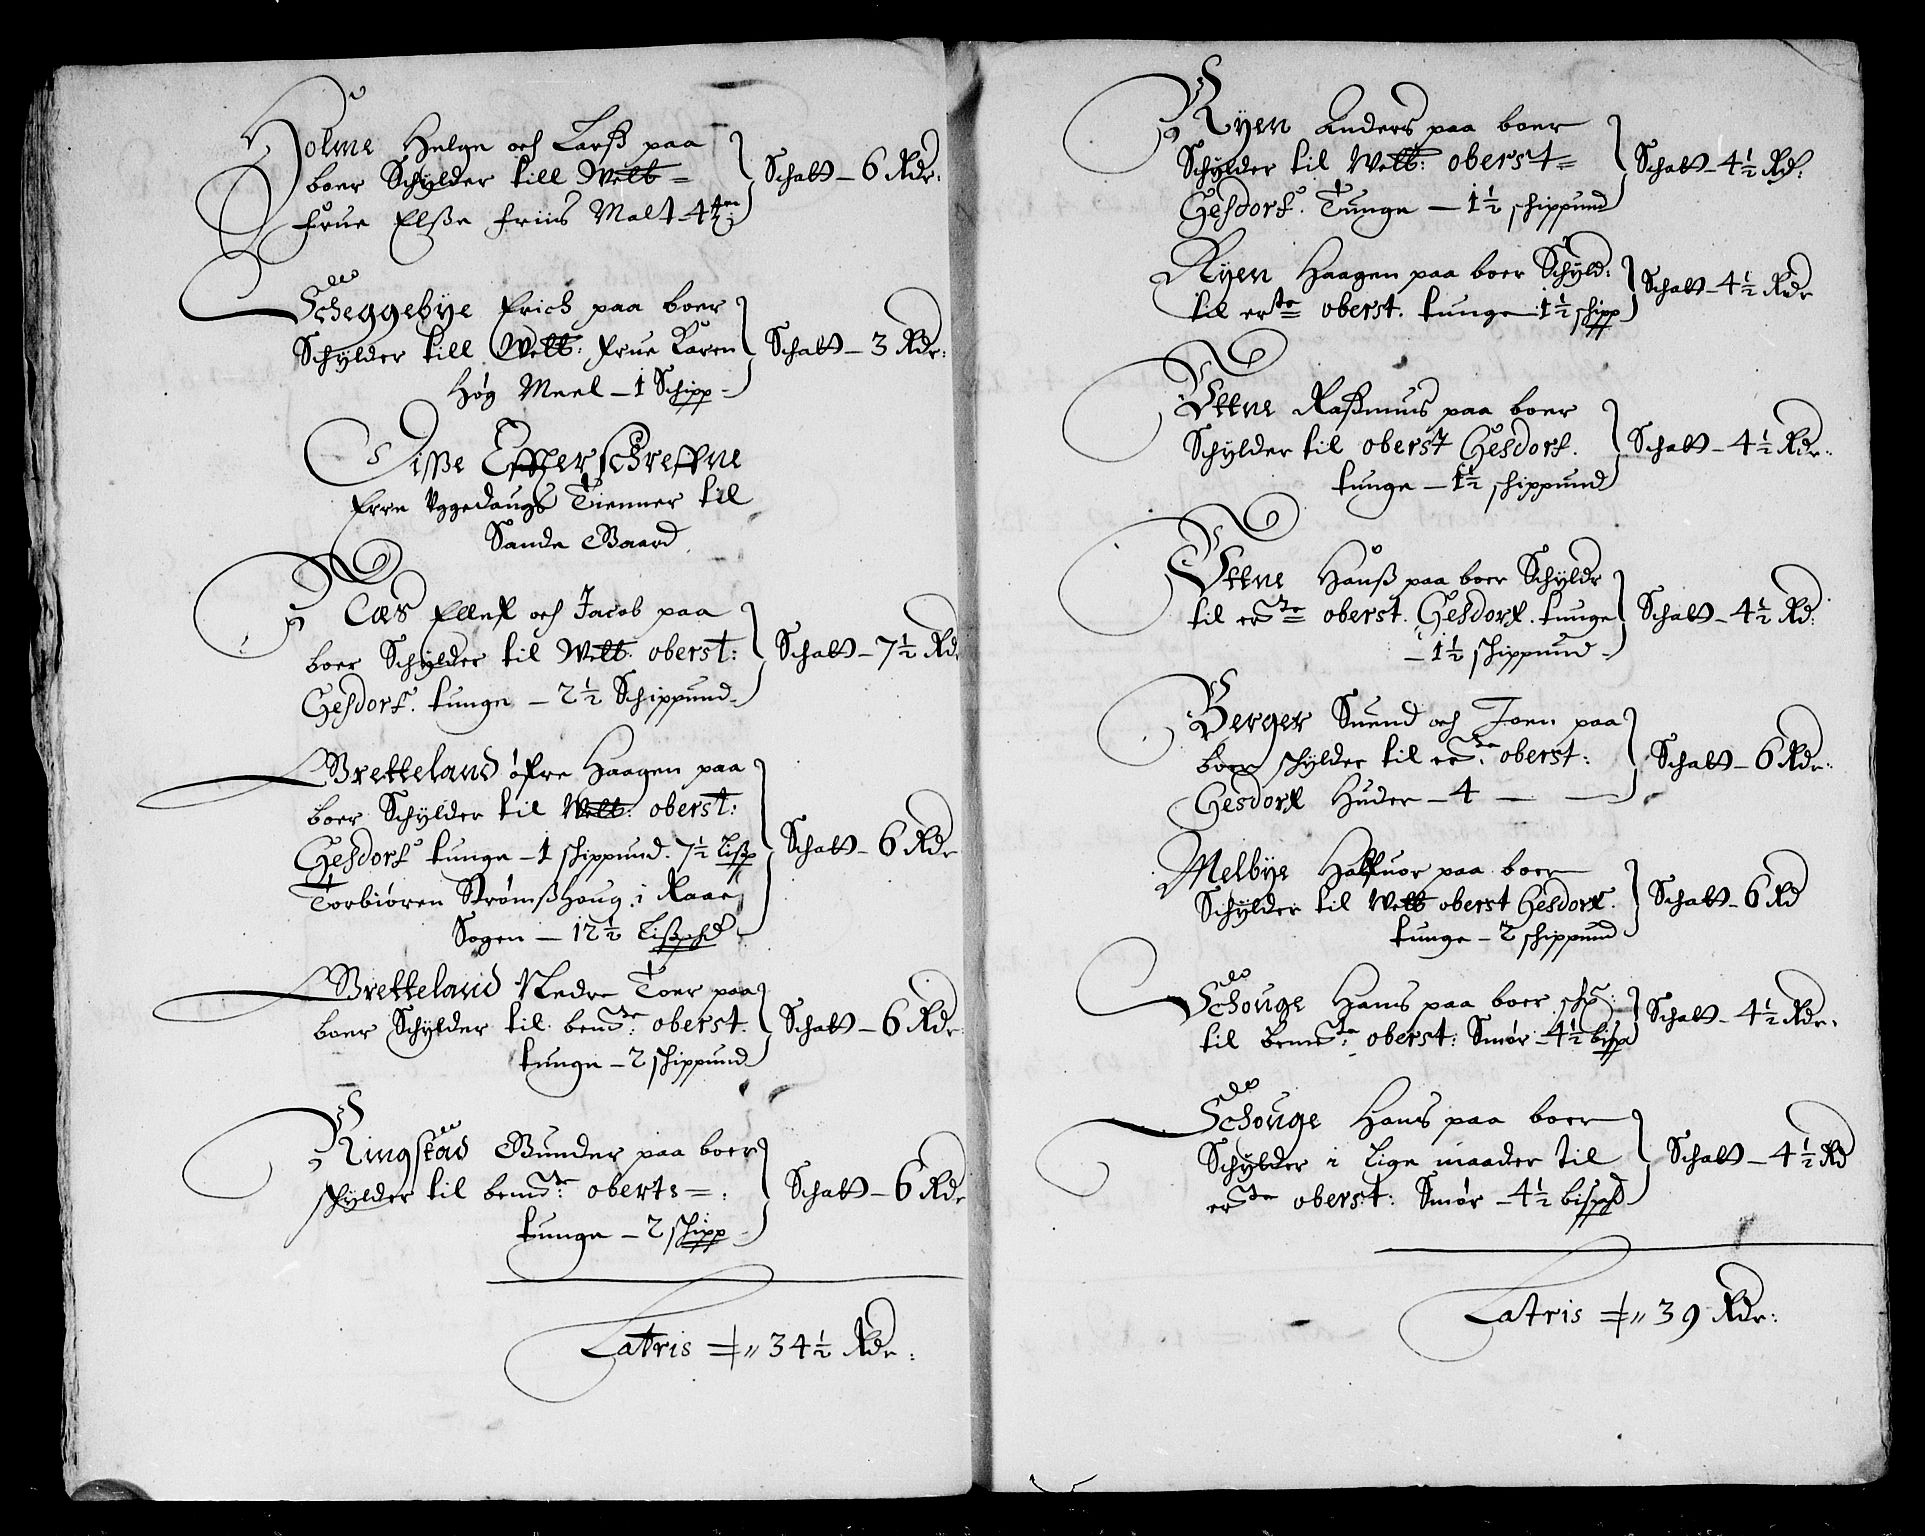 Holme Helge och Larß paa
boer Schylder till Welb =
frue Elße friis Malt – 4 tn:
Schatt – 6 Rdr:
Scheggebÿe Erich paa boer
Schÿlder till Welb: frue Karen
Høg Meel – 1 Schipp –
Schatt – 3 Rdr:
Disse Effterschreffne
Erre Uggedaugs Tienner till
Sande Gaard
Næs Ellef och Jacob paa
boer Schylder til Welb: oberst:
Gesdorf. tunge – 2 ½ Schippund –
Schatt – 7 ½ Rdr
Bretteland öfre Haagen paa
boer Schÿlder til Welb: oberst:
Gesdorf tunge – 1 schippund. 7 ½ Lißp
Torbiören Strømßhoug i Raae
Sogen – 12 ½ Lißphd
Schatt – 6 Rdr
Bretteland Nedre Toer paa
boer Schÿlder til bemte: oberst.
tunge – 2 schippund
Schatt – 6 Rdr
Ringstad Gunder paa boer
schÿlder til bemte: oberts = :
tunge – 2 schipp –
Schatt – 6 Rdr
Latris =|= „ 34 ½ Rdr:
Rÿen Anders paa boer
Schÿlder til Welb: oberst =
Gesdorf. Tunge – 1 ½ schippund
Schatt – 4 ½ Rd:
Rÿen Haagen paa boer Schÿld:
til erste oberst. tunge 1 ½ schipp
Schatt – 4 ½ Rdr
Ottne Raßmus paa boer
Schÿlder til oberst Gesdorf.
tunge – 1 ½ schippund
Schatt – 4 ½ Rdr:
Ottne Hanß paa boer Schÿldr
til erte oberst. Gesdorf. tunge
– 1 ½ schippund –
Schatt – 4 ½ Rd:
Berger Suend och Joen paa
boer schÿlder til erte: oberst:
Gesdorf Huder – 4 — —
Schatt – 6 Rdr:
Melbÿe Halfuor paa boer
Schÿlder til Welb oberst Gesdorf.
tunge – 2 schippund
Schatt – 6 Rd
Schouge Hans paa boer sch:
til bemte: oberst: Smør – 4 ½ bisp
Schatt – 4 ½ Rdr:
Schouge Hans paa boer
Schÿlder i Lige maader til
erte oberst: Smør – 4 ½ bispd
Schatt – 4 ½ Rd
Latris =|= „ 39 Rdr: